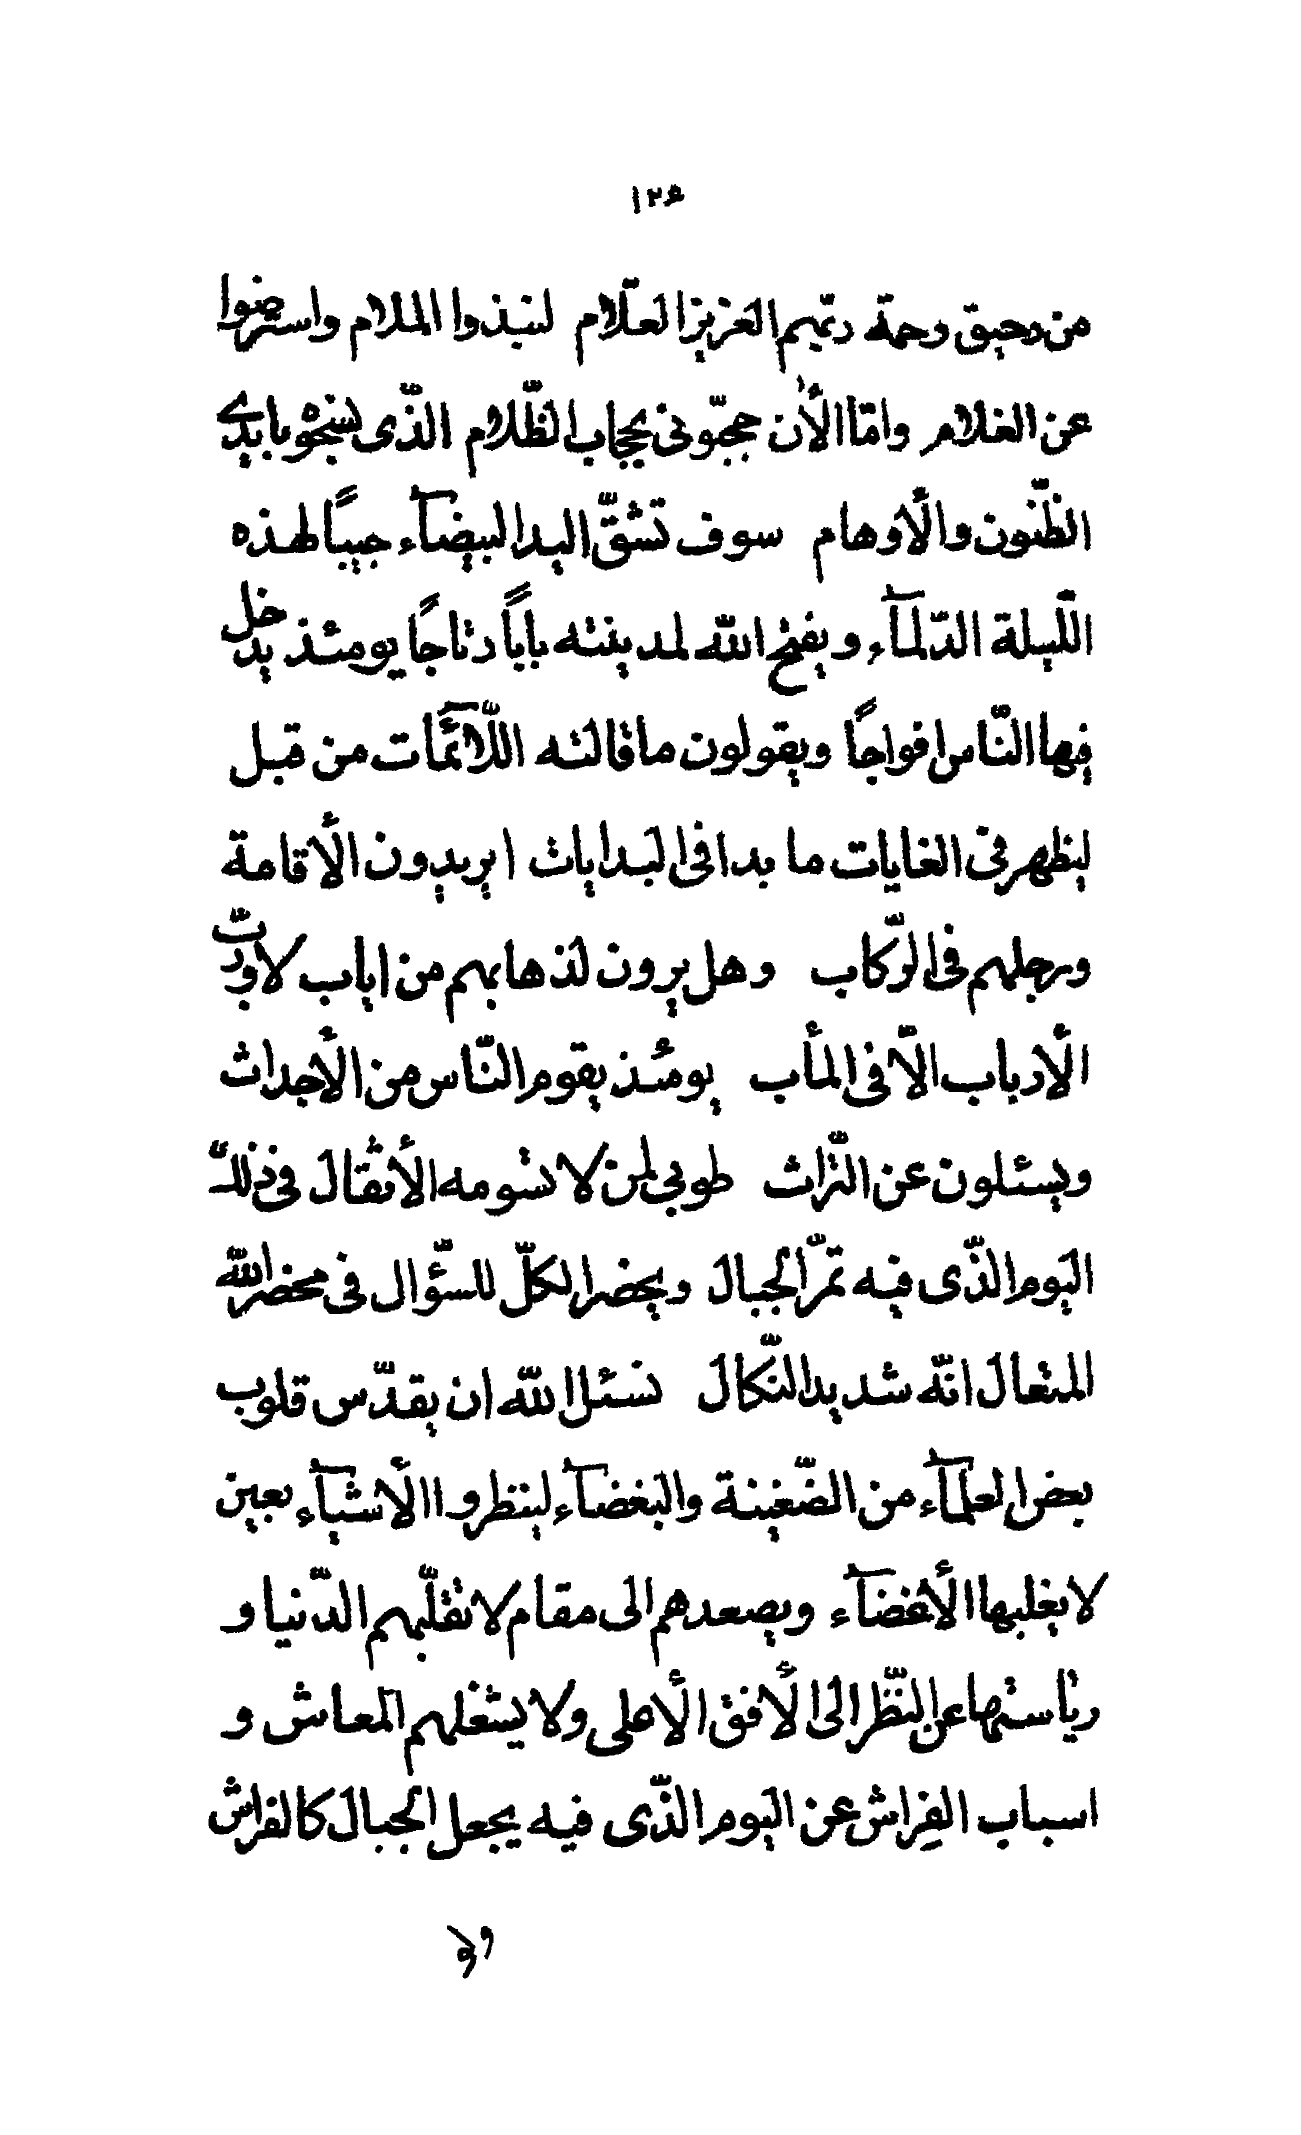 ١٢۶
من رحيق رحمة ربّهم العزيز العلّام لنبذوا الملام واسترضوا
عن الغلام وامّا الأن حجّبونى بحجاب الظّلام الّذى نسجوه بايدى
الظّنون والأوهام سوف تشقّ اليد البيضآء جيبًا لهذه
اللّيلة الدّلمآء ويفتح الله لمدينته بابًا رتاجًا يومئذ يدخل
فيها النّاس افواجًا ويقولون ما قالته اللّائمآت من قبل
ليظهر فى الغايات ما بدا فى البدايات ا يريدون الأقامة
ورجلهم فى الرّكاب وهل يرون لذهابهم من اياب لا وربّ
الأرباب الّا فى المأب يومئذ يقوم النّاس من الأجداث
ويسئلون عن التّراث طوبى لمن لا تسومه الأثقال فى ذلك
اليوم الّذى فيه تمرّ الجبال ويحضر الكلّ للسّؤال فى محضر الله
المتعال انّه شديد النّكال نسئل الله ان يقدّس قلوب
بعض العلمآء من الضّغينة والبغضآء لينظروا الأشيآء بعين
لا يغلبها الأغضآء ويصعدهم الى مقام لا تقلّبهم الدّنيا و
رياستها عن النّظر الى الأفق الأعلى ولا يشغلهم المعاش و
اسباب الفراش عن اليوم الّذى فيه يجعل الجبال كالفراش
ولو